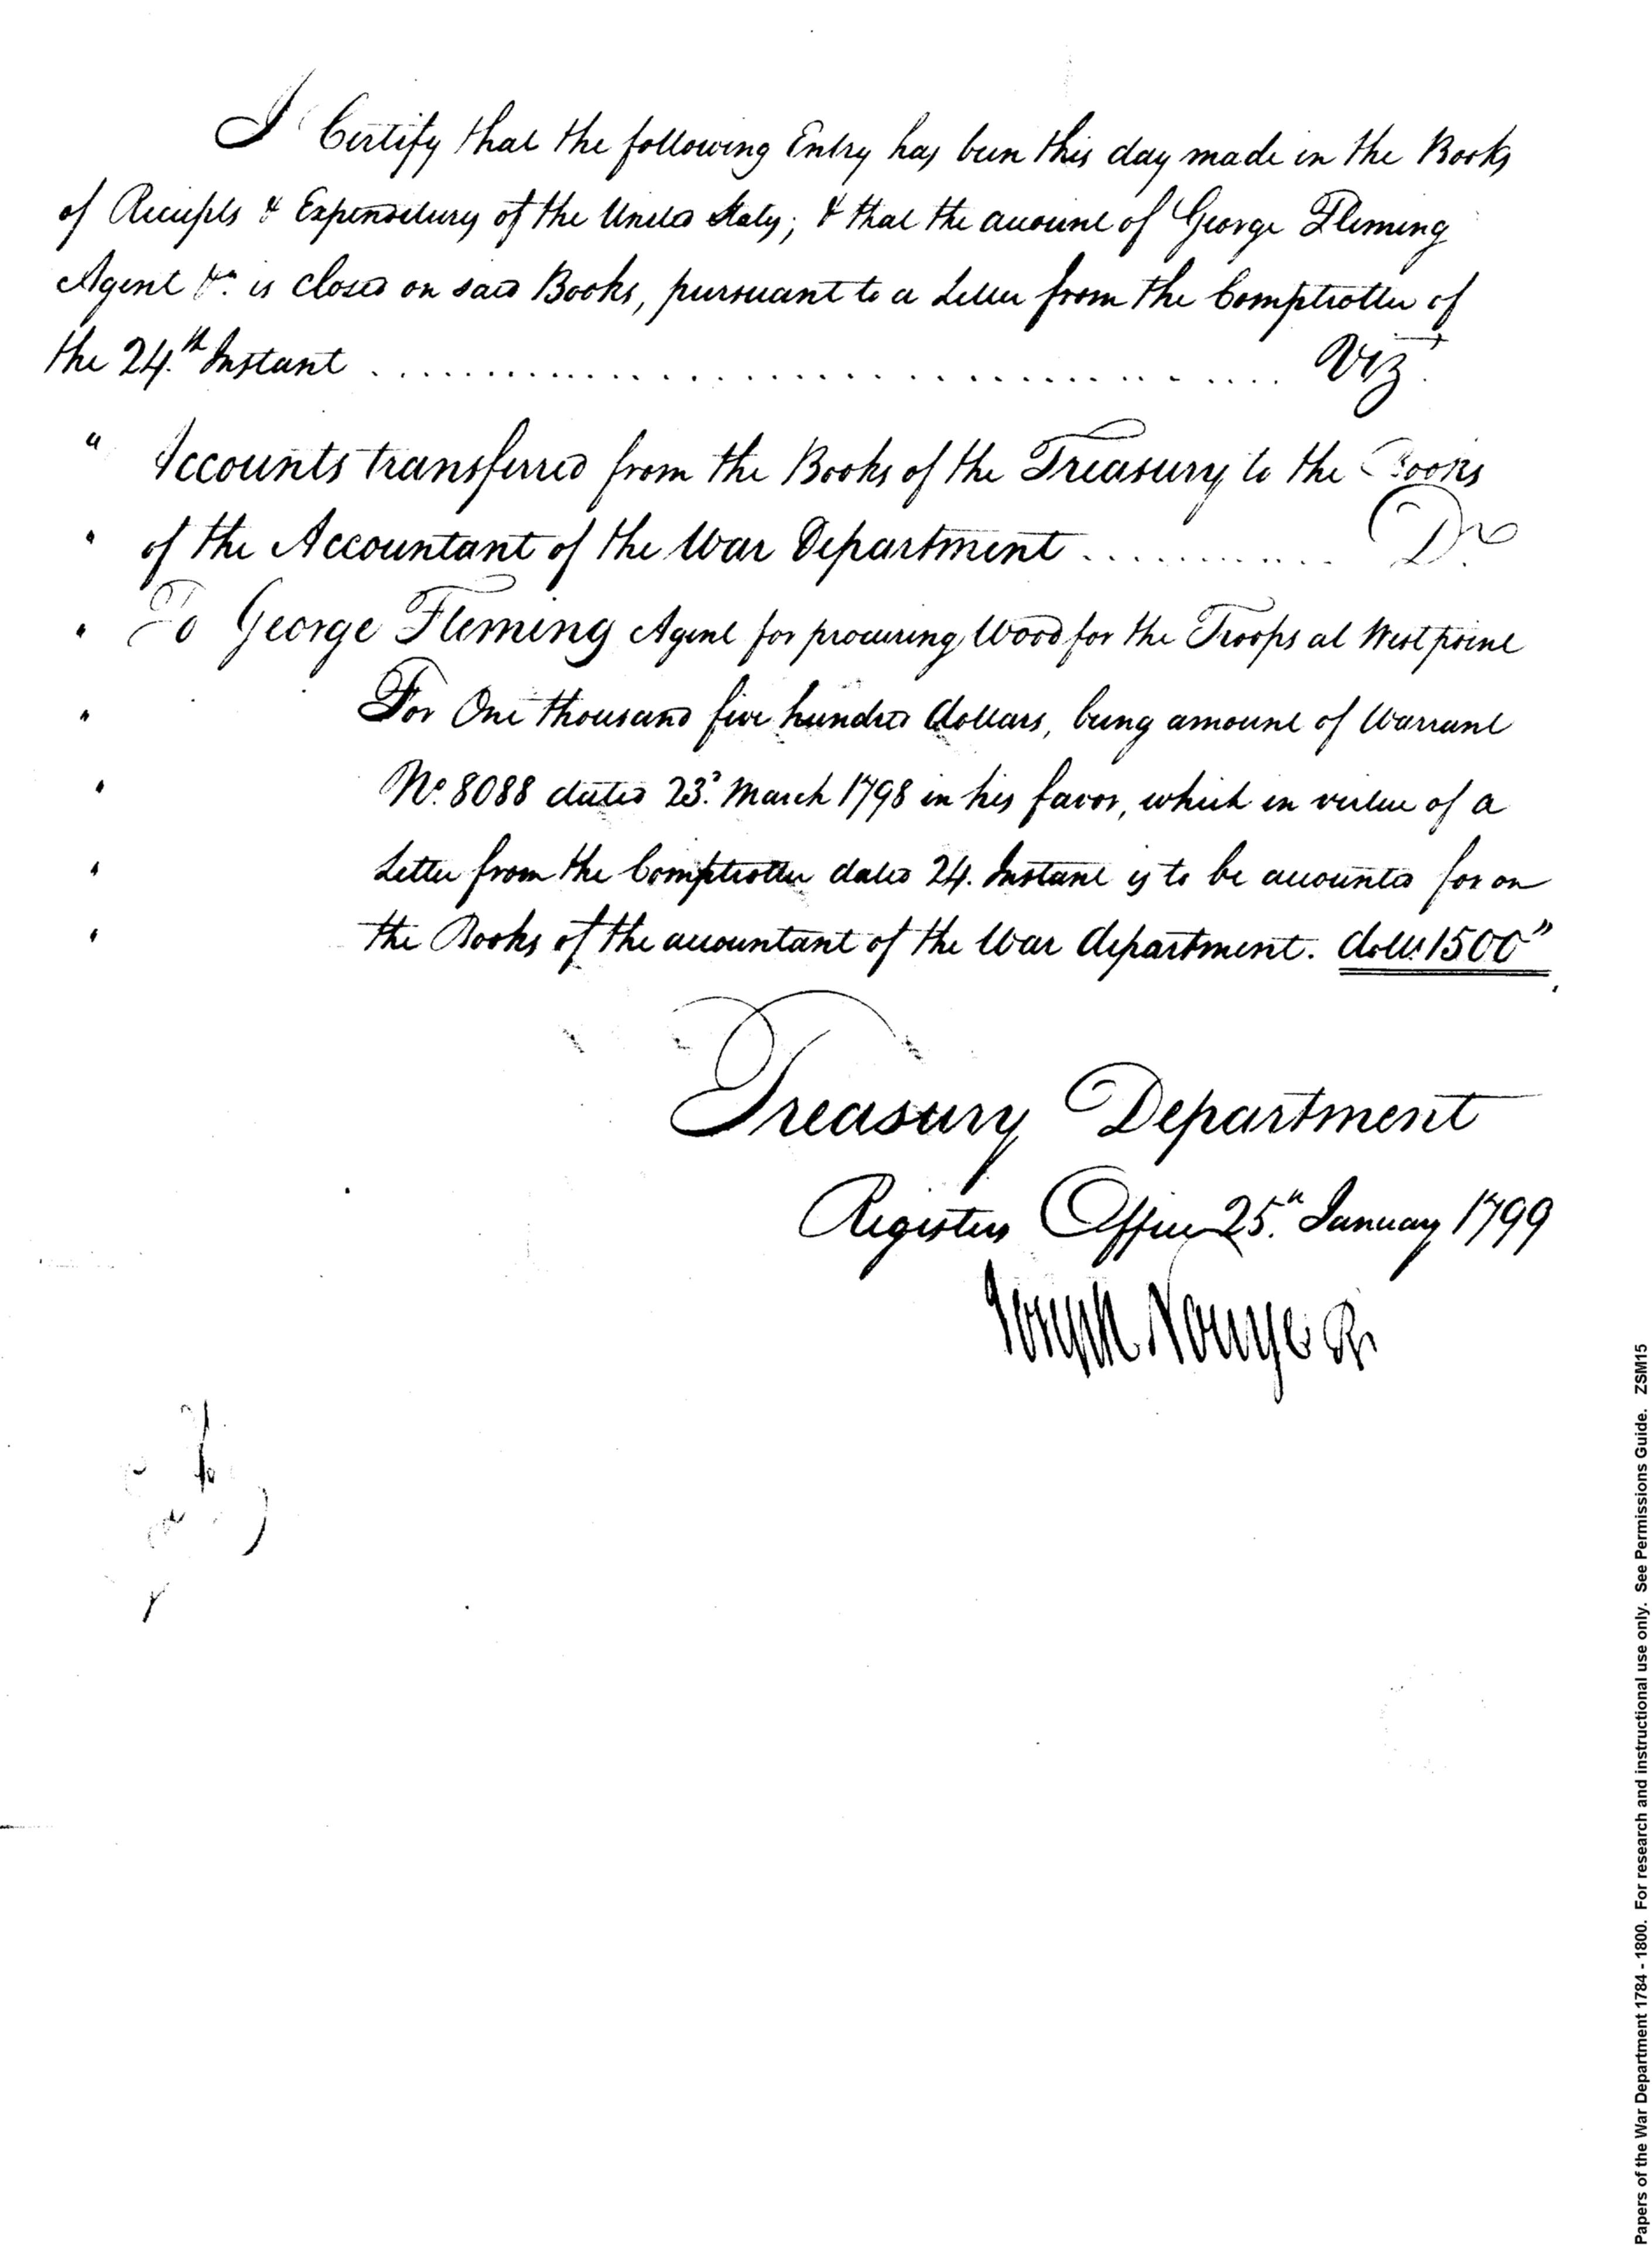 I Certify that the following Entry has been this day made in the Books
of Receipts & Expenditures of the United States; & that the account of George Fleming
Agent &ca. is closed on said Books, pursuant to a Letter from the Comptroller of
the 24.th Instant .................................................. Vizt.
" Accounts transferred from the Books of the Treasury to the Books
" of the Accountant of the War Department ............. Dr.
" To George Fleming Agent for procuring Wood for the Troops at West point
" For One thousand five hundred dollars, being amount of Warrant
" No. 8088 dated 23d. March 1798 in his favor, which in virtue of a
" Letter from the Comptroller dated 24. Instant is to be accounted for on
" the Books of the accountant of the War department. dolls. 1500"
Treasury Department
Registers Office 25.th January 1799
Joseph Nourse R.
Papers of the War Department 1784 - 1800. For research and instructional use only. See Permissions Guide. ZSM15